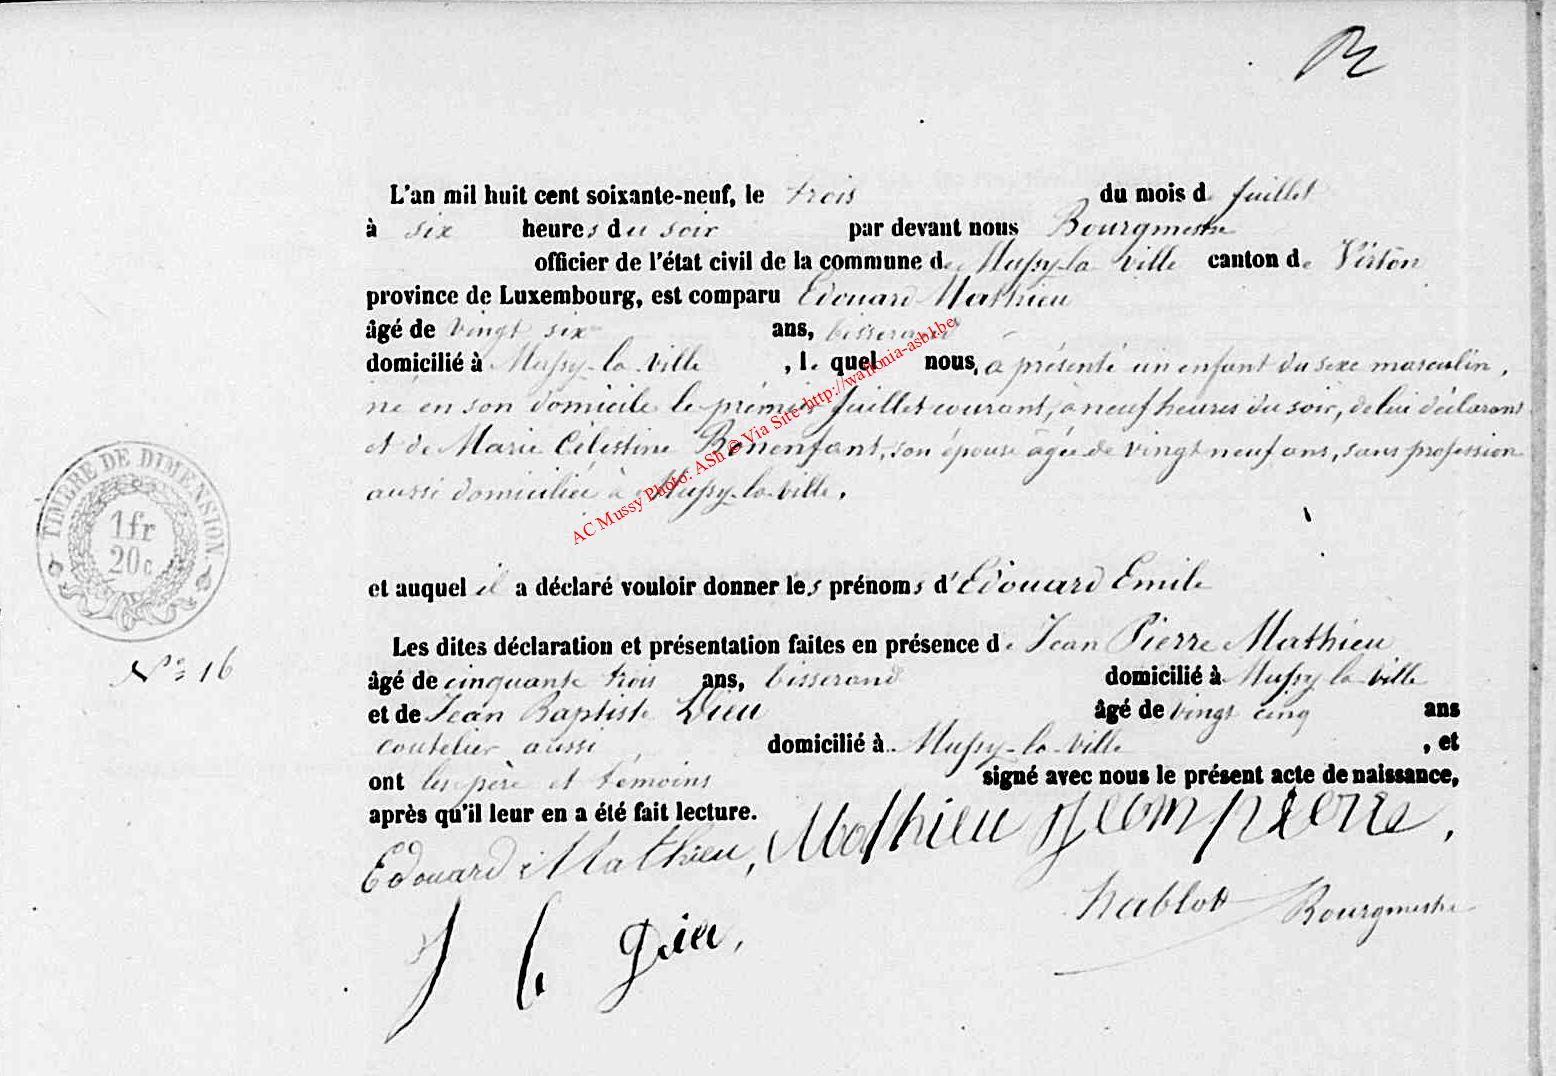 L'an mil huit cent soixante-neuf, le trois du mois de Juillet
à six heures du soir par devant nous Bourgmestre
officier de l'état civil de la commune de Mussy-la-ville canton de Virton
province de Luxembourg, est comparu Edouard Mathieu
âgé de vingt six ans, tisserand
domicilié à Mussy-la-ville , le quel nous, a présenté un enfant du sexe masculin,
né en son domicile le premier Juillet courant, à neuf heures du soir, de lui déclarant
et de Marie Célestine Bonenfant, son épouse âgée de vingt neuf ans, sans profession
aussi domiciliée à Mussy-la-ville.
AC Mussy Photo: ASh © Via Site-http://wallonia-asbl.be
TIMBRE DE DIMENSION.
1fr
20c
et auquel il a déclaré vouloir donner les prénoms d'Edouard Emile
Les dites déclaration et présentation faites en présence de Jean Pierre Mathieu
N° 16
âgé de cinquante trois ans, tisserand domicilié à Mussy la ville
et de Jean Baptiste Dieu âgé de vingt cinq ans
coutelier aussi domicilié à Mussy-la-ville , et
ont les père et témoins signé avec nous le présent acte de naissance,
après qu'il leur en a été fait lecture.
Edouard Mathieu, Mathieu jeanpierre,
Bourgmestre